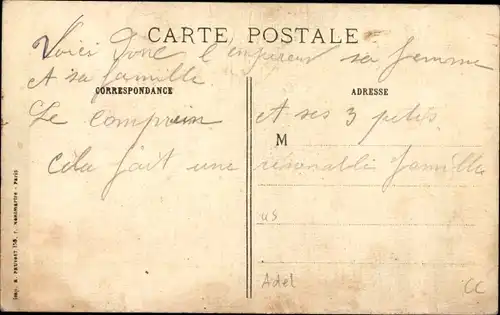 CARTE POSTALE
Voici donc l'empereur sa femme
et sa famille
CORRESPONDANCE
ADRESSE
Je comprein
et ses 3 petits
M
cela fait une
résonables famille
us
Adel
CC
Imp. E. PRUVOST 159, r. Montmartre - Paris